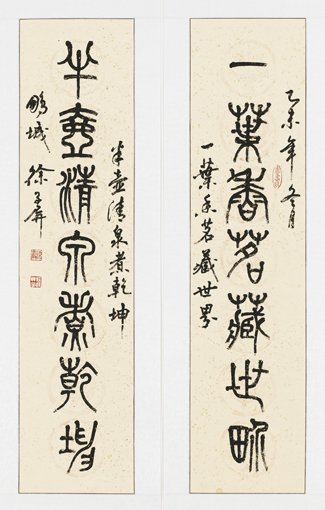 乙未年冬月
一葉香茗藏世界
一葉香茗藏世界
半壺清泉煮乾坤
半壺清泉煮乾坤
鵬城
徐子